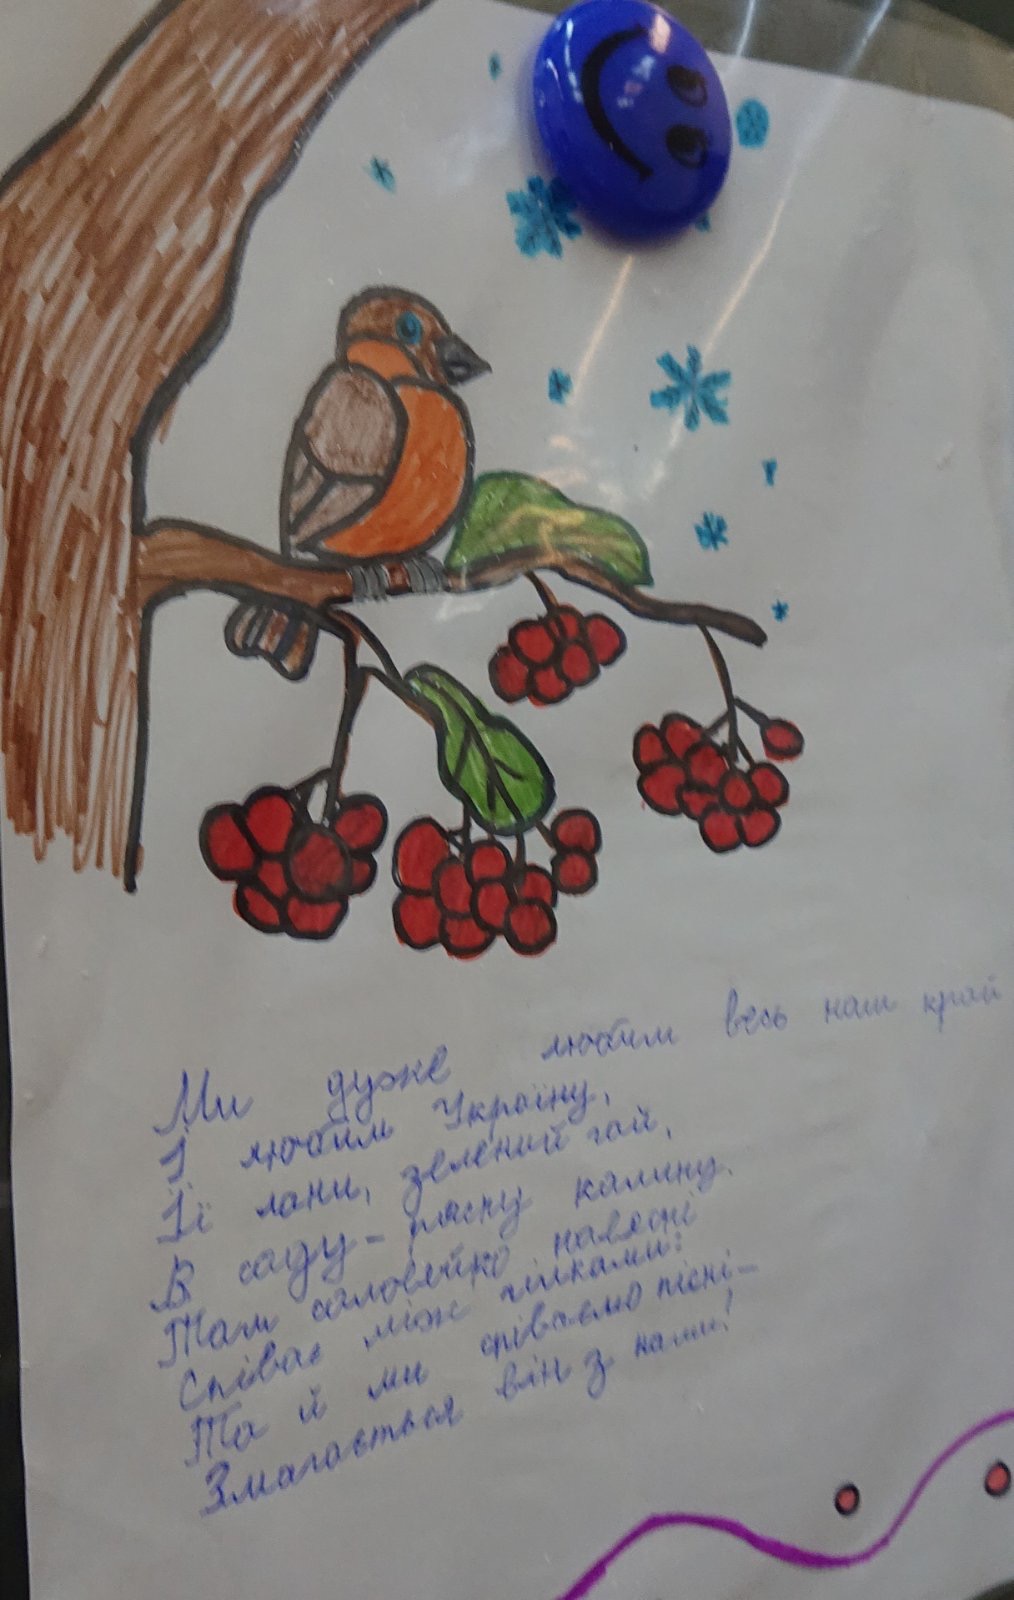 Ми дуже любим весь наш край
І любим Україну,
Її лани, зелений гай,
В саду - рясну калину.
Там соловейко навесні
Співає між гілками:
Та й ми співаємо пісні -
Змагається він з нами!